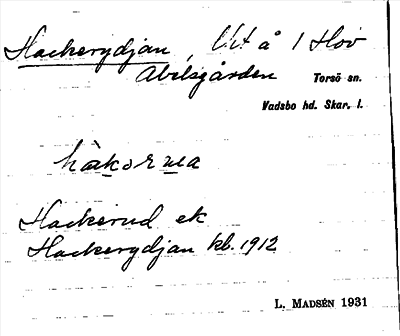 Hackerydjan, Vit å 1 Hov
Abelsgården Torsö sn.
Vadsbo hd. Skar. l.
håkorna
Hackerud ek
Hackerydjan kb. 1912
L. Madsén 1931